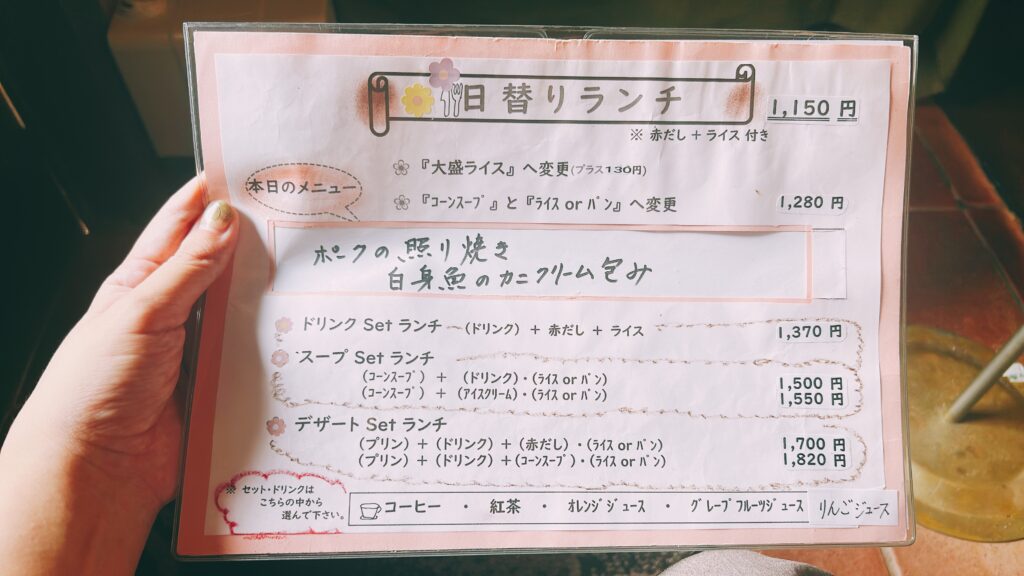 日替りランチ 1,150 円
※ 赤だし + ライス 付き
『大盛ライス』へ変更(プラス130円)
本日のメニュー
『コーンスープ』と『ライス or パン』へ変更 1,280 円
ポークの照り焼き
白身魚のカニクリーム包み
ドリンク Set ランチ ～(ドリンク) + 赤だし + ライス 1,370 円
スープ Set ランチ
(コーンスープ) + (ドリンク)・(ライス or パン) 1,500 円
(コーンスープ) + (アイスクリーム)・(ライス or パン) 1,550 円
デザート Set ランチ
(プリン) + (ドリンク) + (赤だし)・(ライス or パン) 1,700 円
(プリン) + (ドリンク) + (コーンスープ)・(ライス or パン) 1,820 円
※ セット・ドリンクは
こちらの中から
選んで下さい。
コーヒー ・ 紅茶 ・ オレンジジュース ・ グレープフルーツジュース りんごジュース